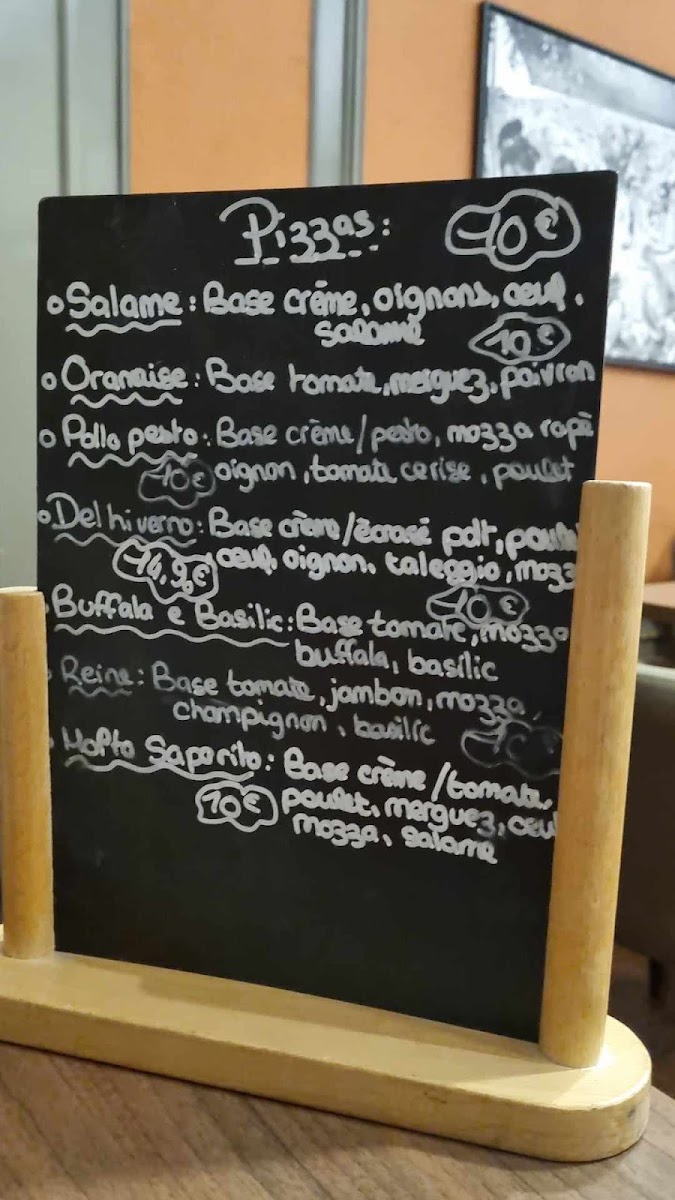 Pizzas: 10€
Salame: Base crème, oignons, oeuf.
salame 10€
Oranaise: Base tomate, merguez, poivron
Pollo pesto: Base crème/pesto, mozza rapè
10€ oignon, tomate cerise, poulet
Del hiverno: Base crème/écrasé pdt,
14,90€ oeuf, oignon, taleggio, mozz
10€
Buffala e Basilic: Base tomate, mozza
buffala, basilic
Reine: Base tomate, jambon, mozza,
champignon, basilic 10€
Molto Saporito: Base crème/tomate,
10€ poulet, merguez,
mozza, salame